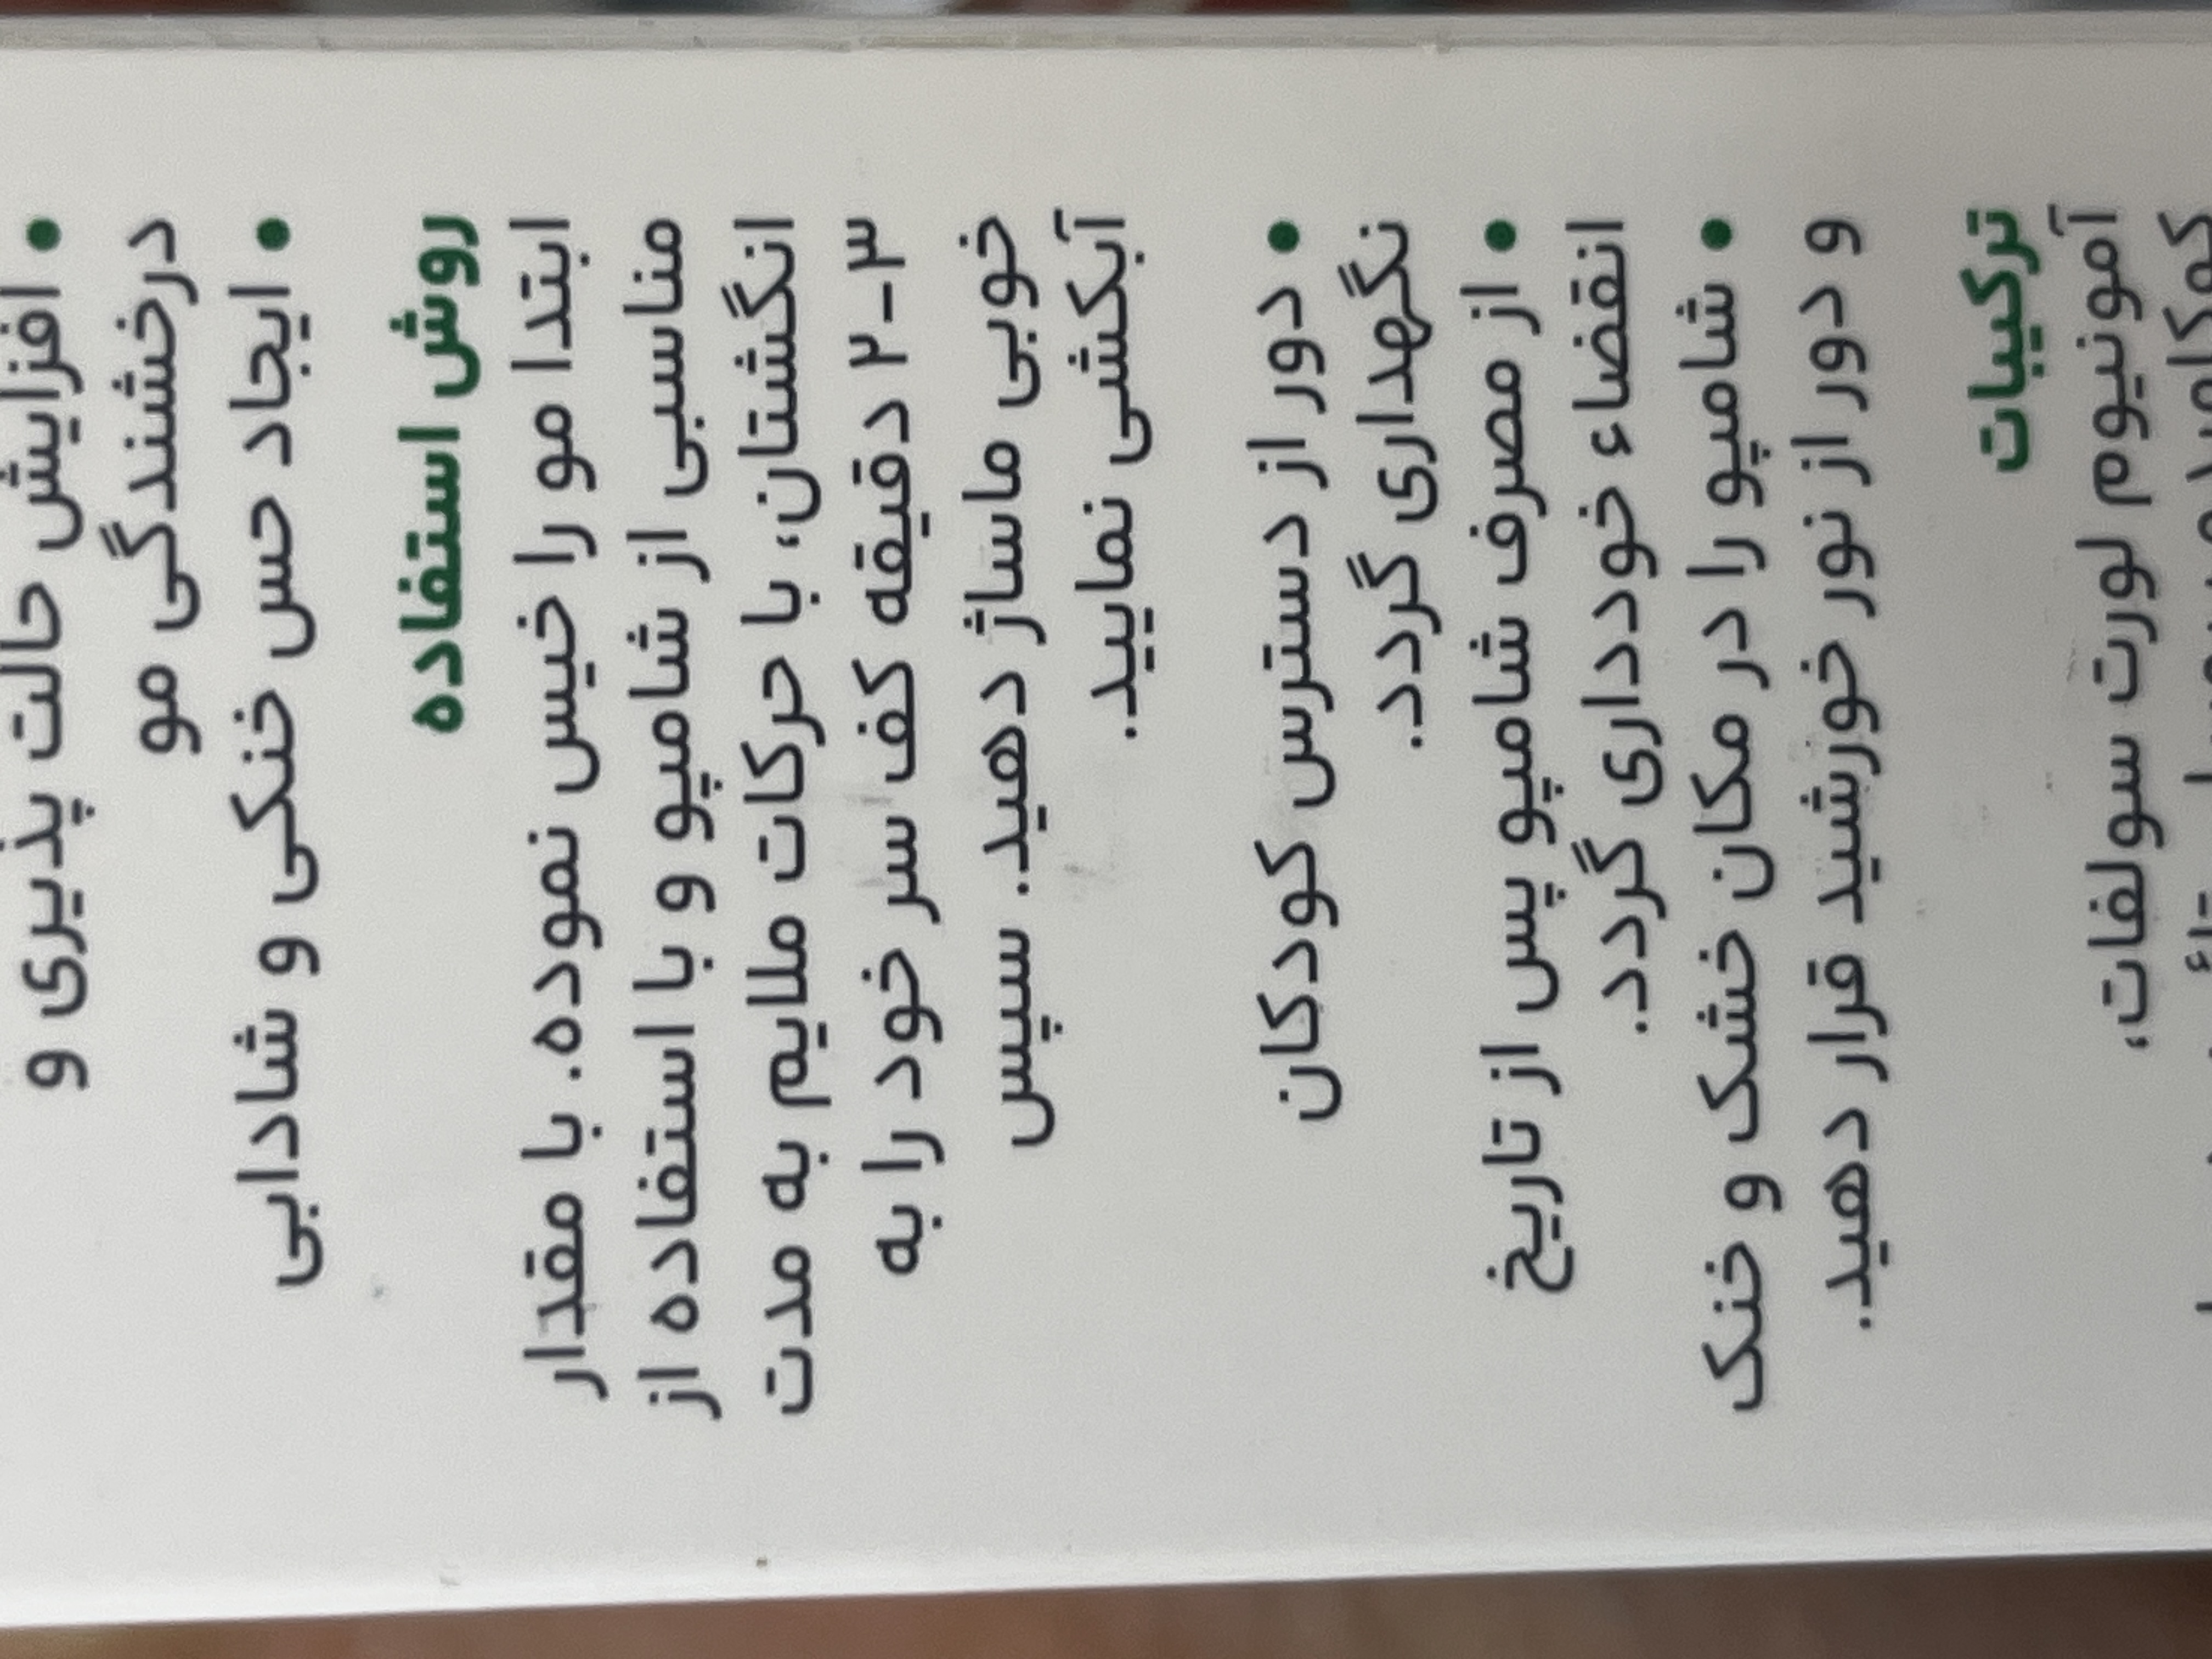 • افزایش حالت پذیری و
درخشندگی مو
• ایجاد حس خنکی و شادابی
روش استفاده
ابتدا مو را خیس نموده. با مقدار
مناسبی از شامپو و با استفاده از
انگشتان، با حرکات ملایم به مدت
۲-۳ دقیقه کف سر خود را به
خوبی ماساژ دهید. سپس
آبکشی نمایید.
• دور از دسترس کودکان
نگهداری گردد.
• از مصرف شامپو پس از تاریخ
انقضاء خودداری گردد.
• شامپو را در مکان خشک و خنک
و دور از نور خورشید قرار دهید.
ترکیبات
آمونیوم لورت سولفات،